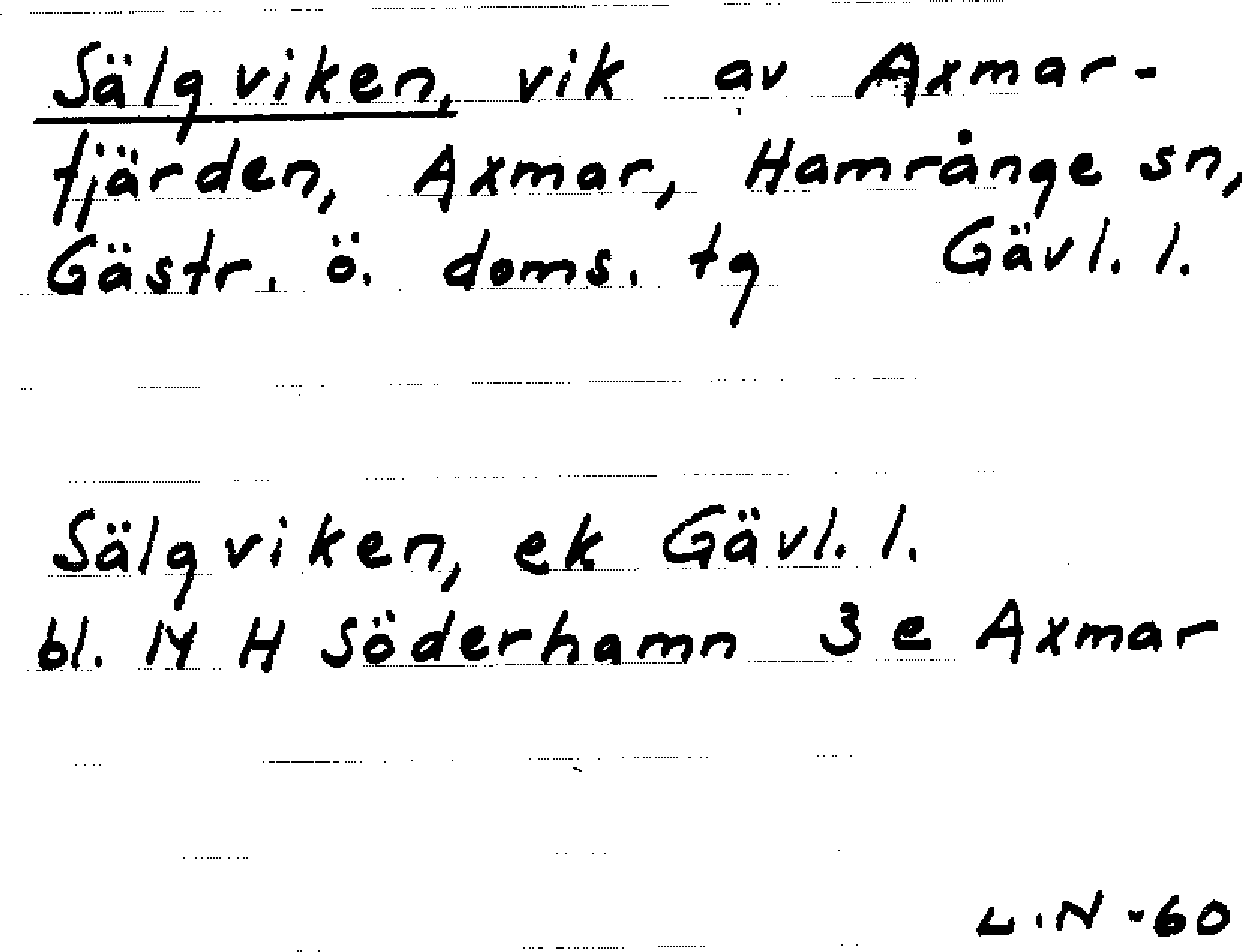 Sälgviken, vik av Axmar-
fjärden, Axmar, Hamrånge sn,
Gästr. ö. doms. tg Gävl. l.
Sälgviken, ek Gävl. l.
bl. 14 H Söderhamn 3 e Axmar
L.N -60